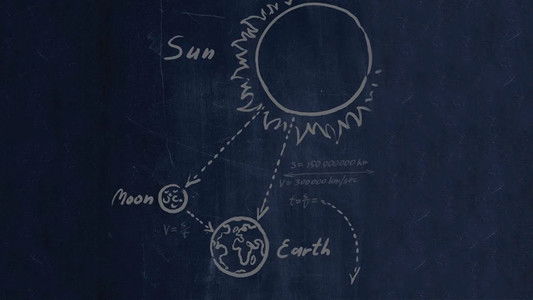 Sun
S = 150 000 000 km
V = 300 000 km/sec
t = S/V =
Moon
V = S/t
Earth